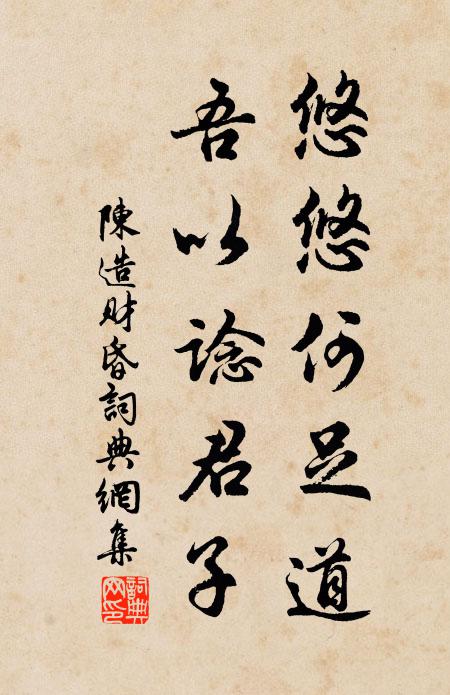 悠悠何足道
吾以諗君子
陳造財昏詞典網集
詞典网印